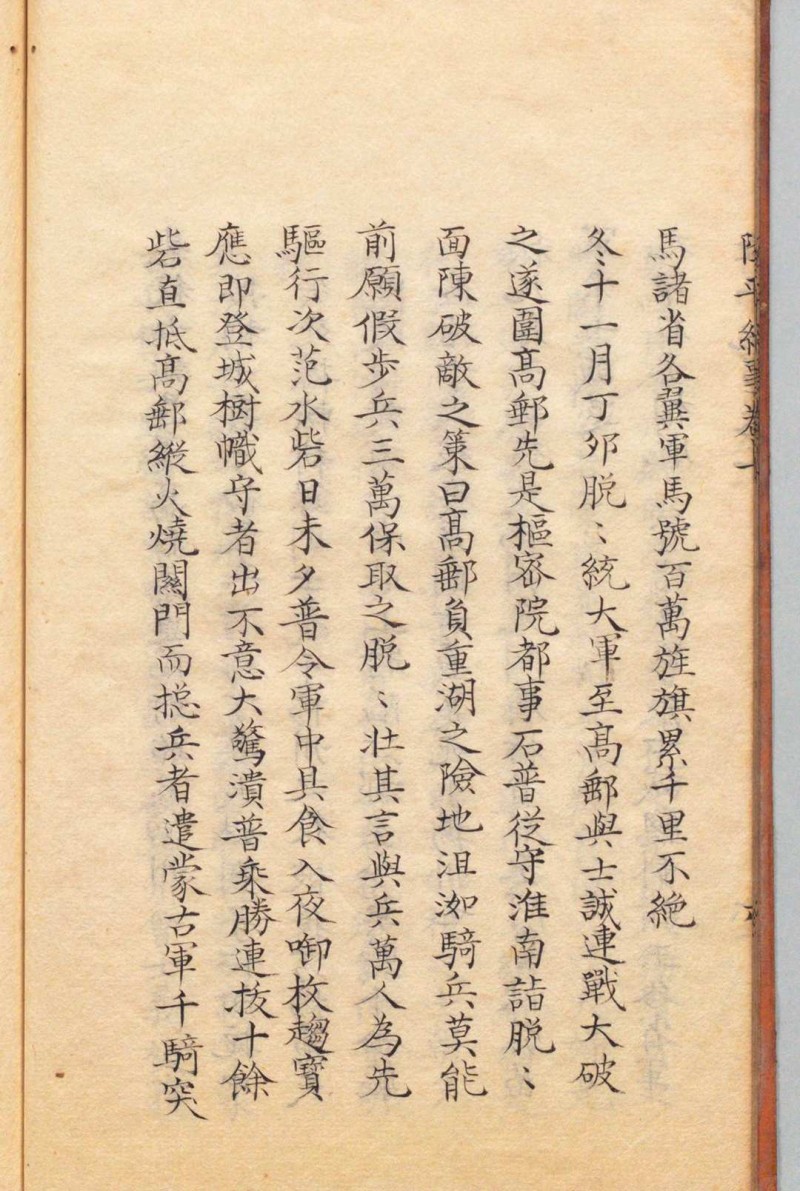 平 卷十
馬諸省各翼軍馬號百萬旌旗累千里不絶
冬十一月丁夘脱〻統大軍至髙郵與士誠連戰大破
之遂圍髙郵先是樞密院都事石普從守淮南詣脱〻
面陳破敵之策曰髙郵負重湖之險地沮洳騎兵莫能
前願假步兵三萬保取之脱〻壯其言與兵萬人為先
驅行次范水砦日未夕普令軍中具食入夜啣枚趨寶
應即登城樹幟守者出不意大驚潰普乘勝連拔十餘
砦直抵髙郵縱火燒關門而揔兵者遣蒙古軍千騎突